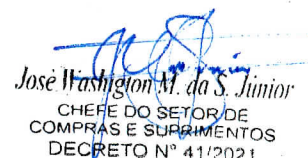 José Washington M. da S. Júnior
CHEFE DO SETOR DE
COMPRAS E SUPRIMENTOS
DECRETO Nº 41/2021